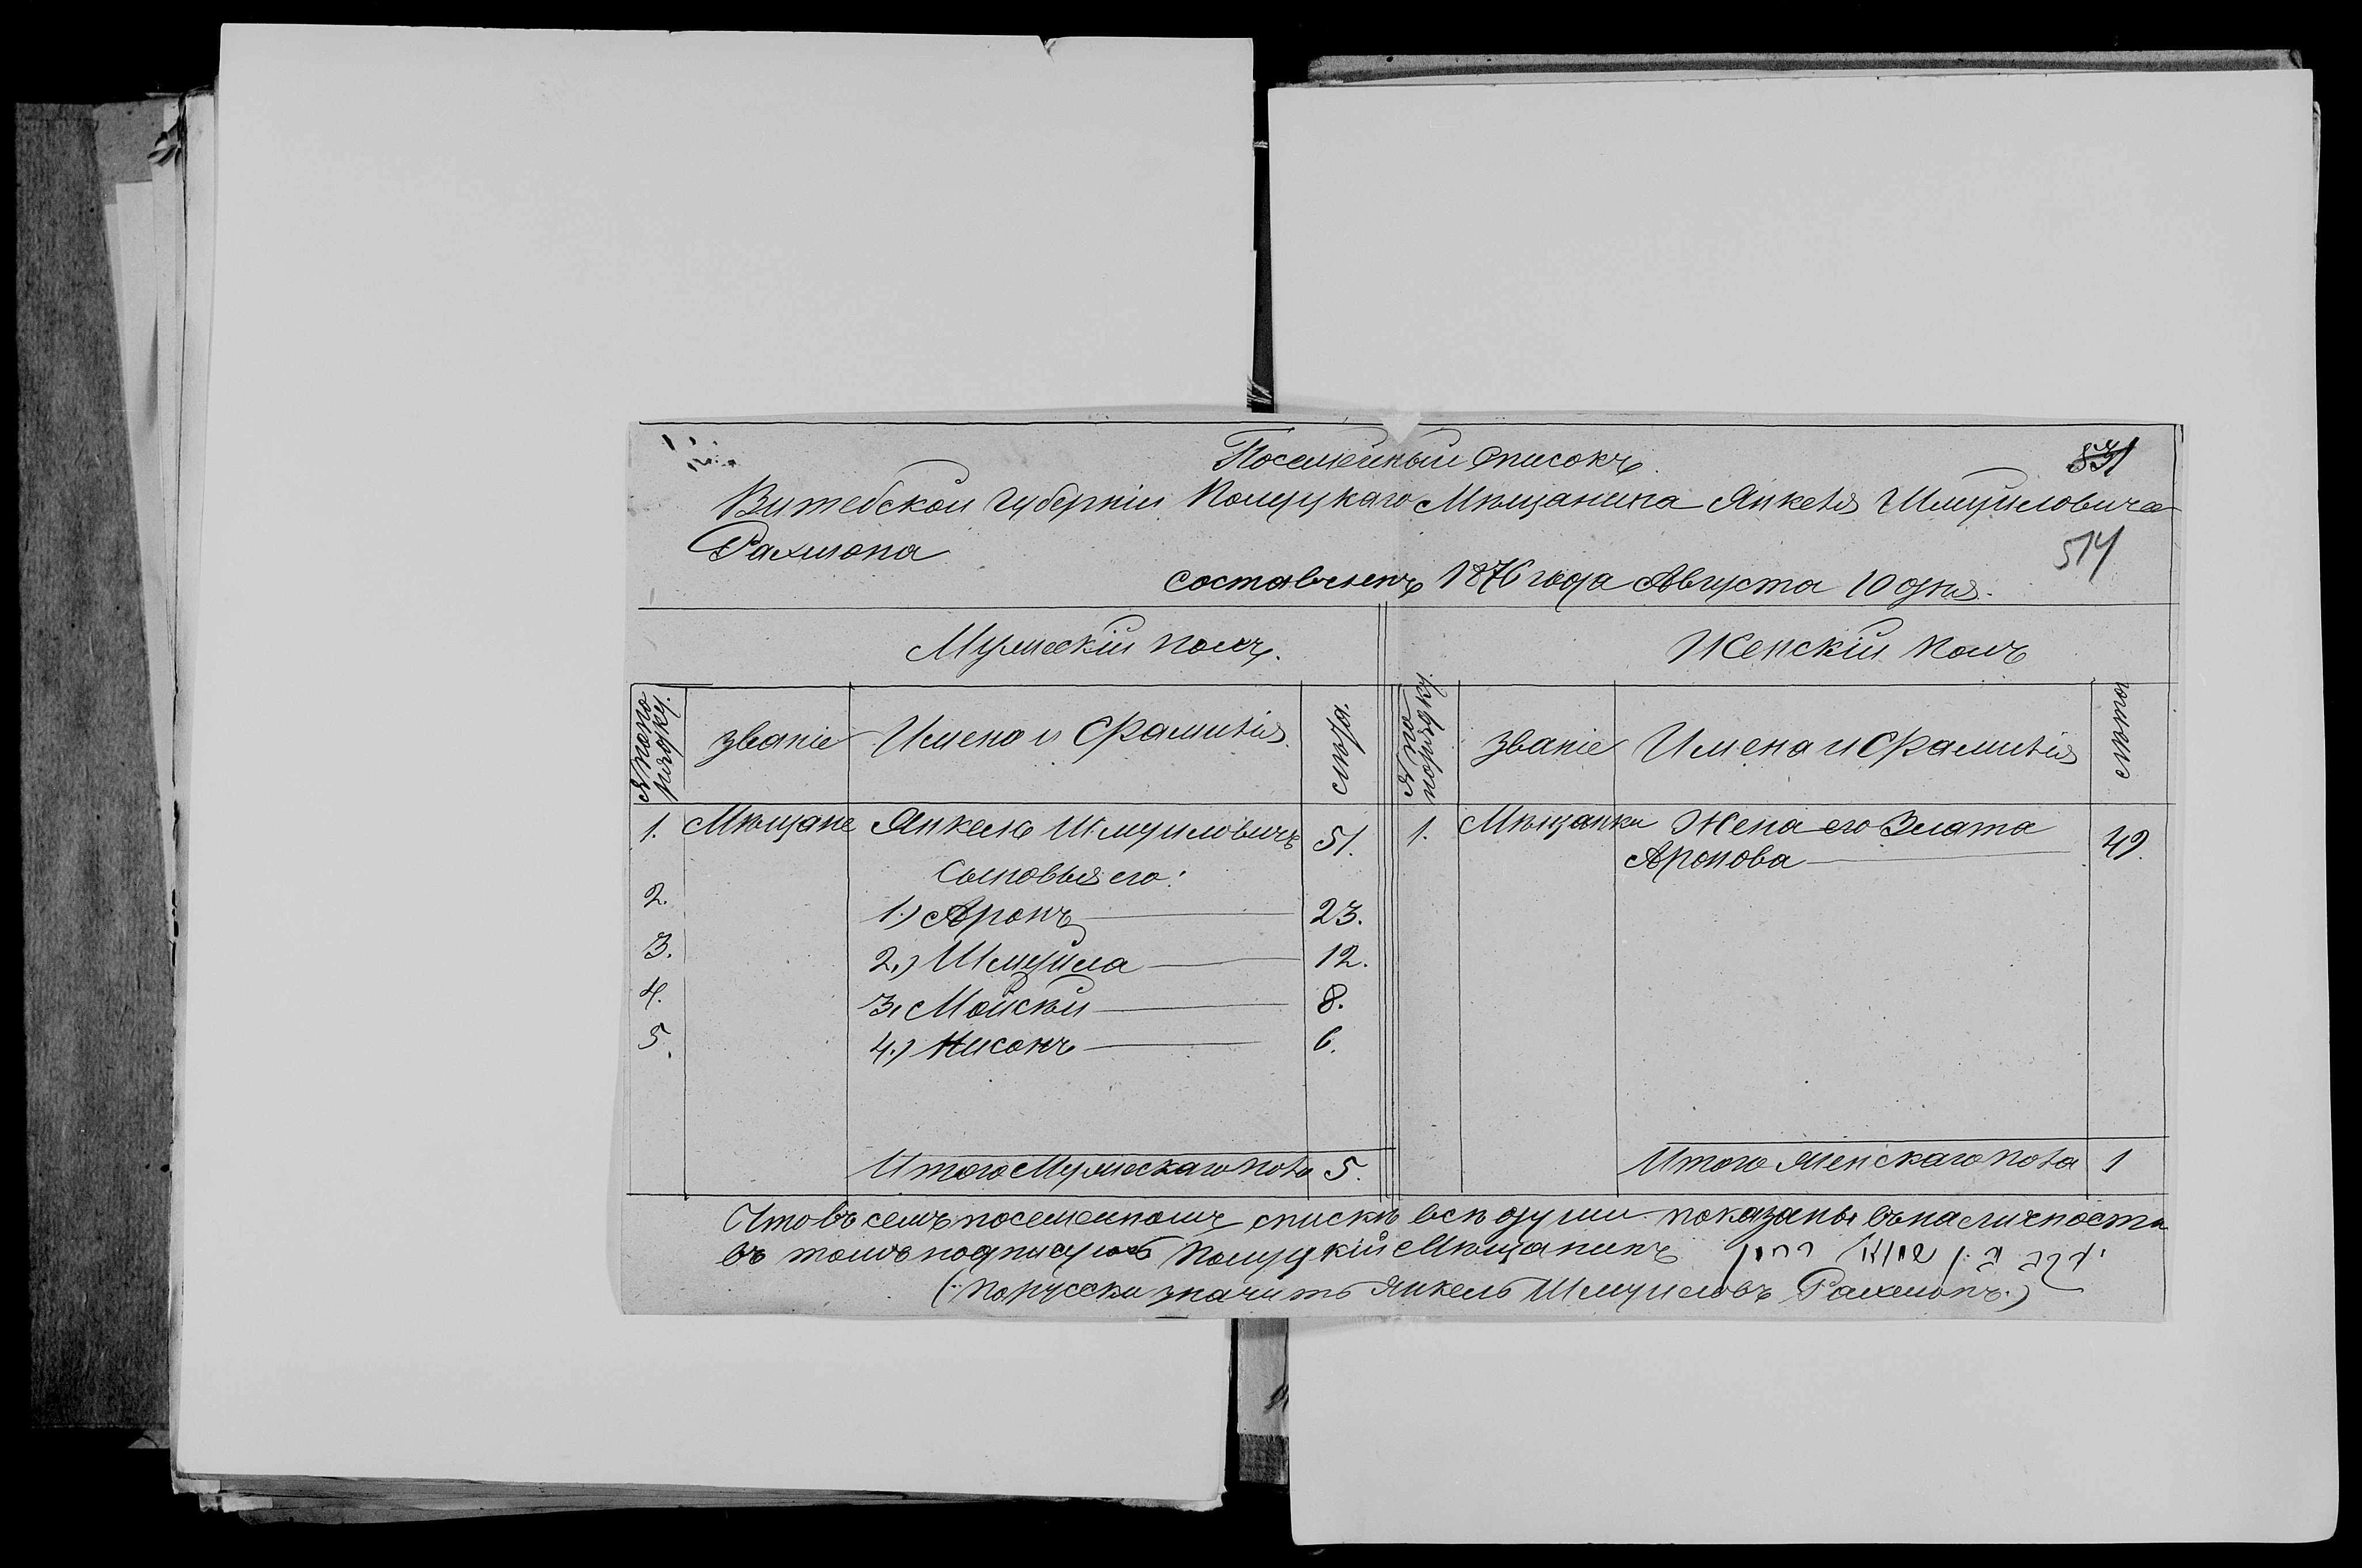 Посемейный Списокъ.
831
Витебской губерніи Полуцкаго Мѣщанина Янкеля Шмуиловича
Рахмона
514
составленъ 1876 года Августа 10 дня.
Мужескій полъ.
Женскій полъ
№ по по
рядку.
званіе
Имена и Фамилія
лѣта.
№ по
порядку.
званіе
Имена и Фамилія
лѣта
1. Мѣщане Янкель Шмуиловичъ 51.
1. Мѣщанки Жена его Злата
Аронова 49.
Сыновья его:
2. 1.) Аронъ 23.
3. 2.) Шмуила 12.
4. 3. Мойсѣй 8.
5. 4.) Нисонъ 6.
Итого Мужескаго пола 5.
Итого Женскаго пола 1
Что въ семъ посемейномъ спискѣ всѣ души показаны въ наличности
въ томъ подпишуюсь Полуцкій Мѣщанинъ
(по русски значитъ Янкель Шмуиловъ Рахмонъ.)